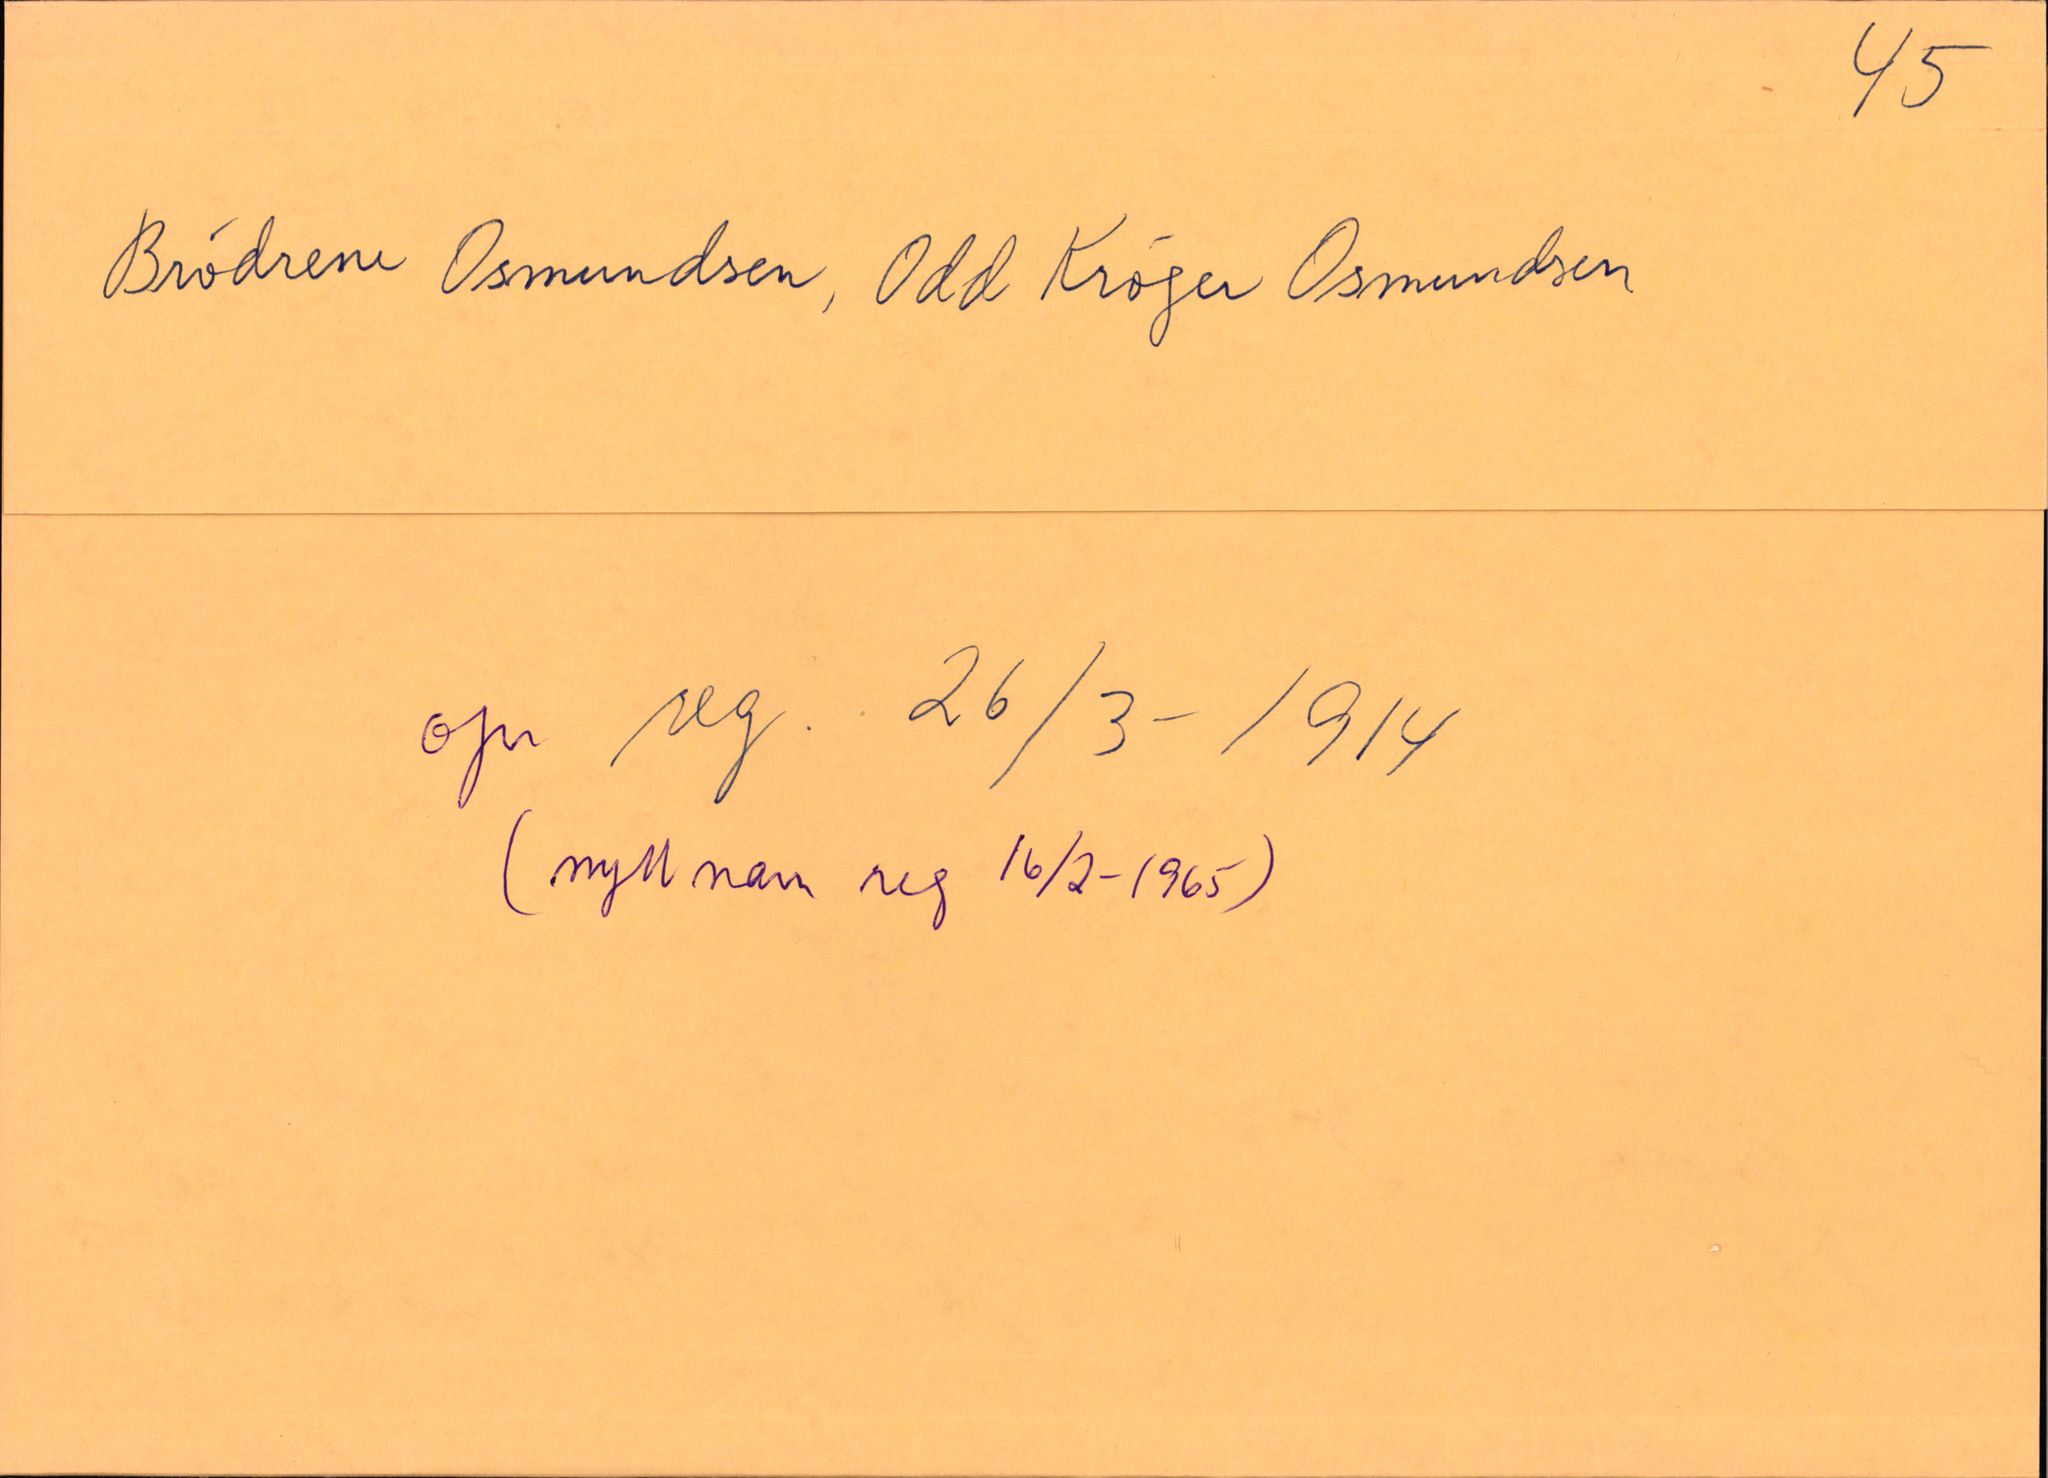 45
Brödrene Osmundsen, Odd Kröger Osmundsen
opr reg. 26/3 - 1914
(nytt navn reg 16/2 - 1965)